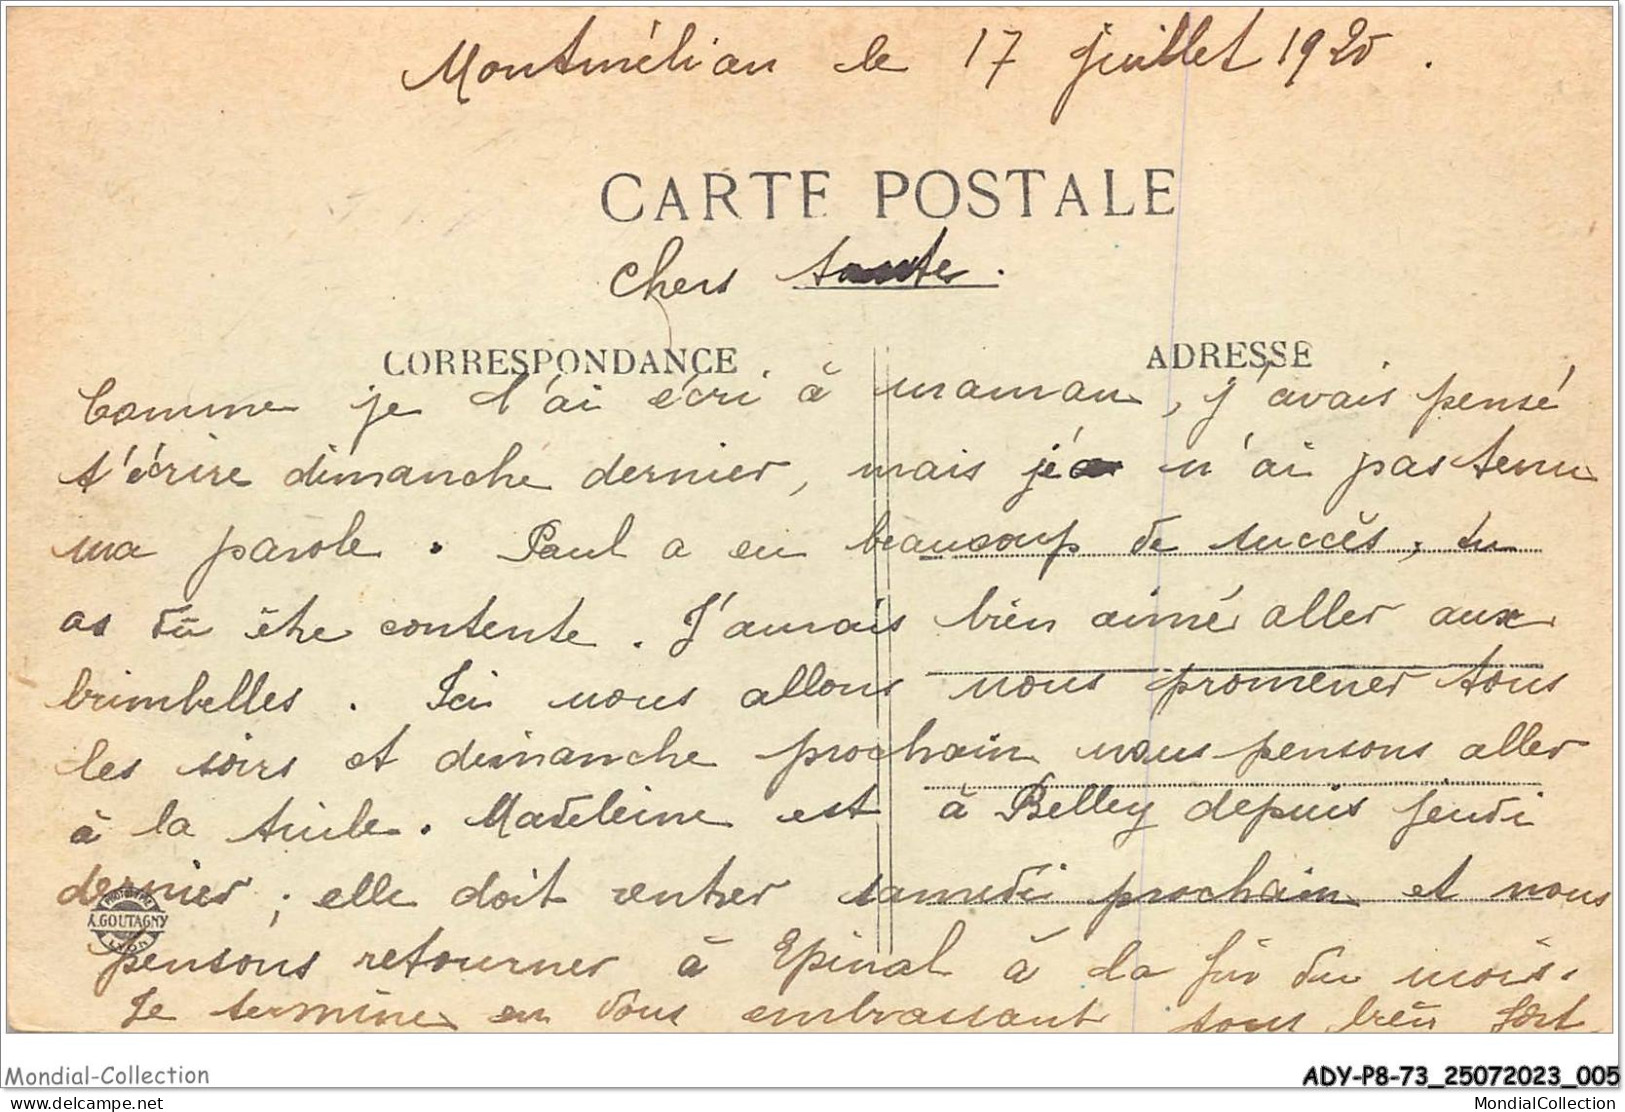 Montmélian le 17 Juillet 1920.
CARTE POSTALE
Chers
CORRESPONDANCE
ADRESSE
Comme je l'ai écri à maman, j'avais pensé
t'écrire dimanche dernier, mais je n'ai pas tenu
ma parole. Paul a eu beaucoup de succès, tu
as dû être contente. J'aurais bien aimé aller aux
brimbelles. Ici nous allons nous promener tous
les soirs et dimanche prochain nous pensons aller
à la tuile. Madeleine est à Belley depuis jeudi
dernier; elle doit rentrer samedi prochain et nous
PHOTOTYPIE
A. GOUTAGNY
LYON
pensons retourner à Epinal à la fin du mois.
Je termine en vous embrassant tous bien fort
Mondial-Collection
ADY-P8-73_25072023_005
delcampe.net
MondialCollection